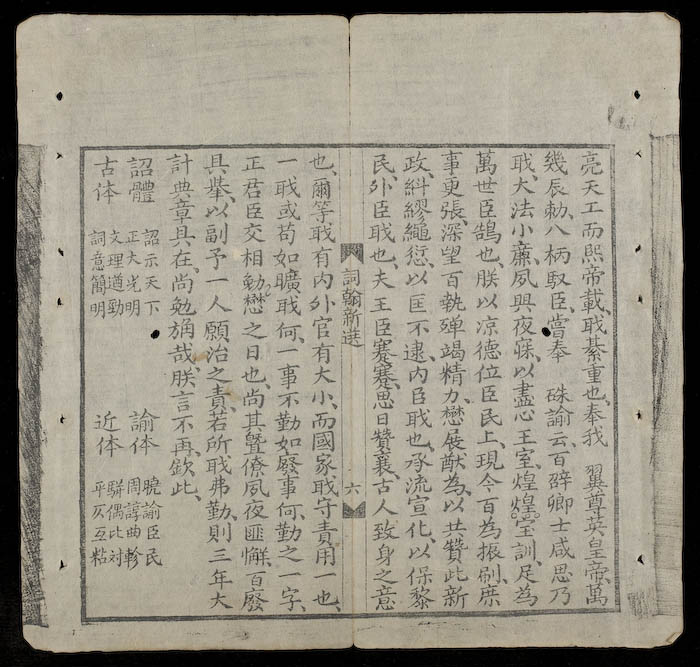 亮天工而熙帝載、耺綦重也、奉我 翼尊英皇帝、萬
幾辰勅、八柄馭臣、嘗奉 硃諭云、百辟卿士咸思乃
耺、大法小廉、夙興夜寐、以盡心王室、煌煌堂訓、足為
萬世臣鵠也、朕以凉德位臣民上、現今百為振刷、庶
事更張、深望百執殫竭精力、懋展猷為、以共贊此新
政、糾繆繩愆、以匡不逮、内臣耺也、承流宣化、以保黎
民、外臣耺也、夫王臣蹇蹇、思日贊襄、古人致身之意
詞翰新選 六
也、爾等耺有内外、官有大小、而國家耺守責用一也、
一耺或苟如曠耺何、一事不勤如廢事何、勤之一字、
正君臣交相勸懋之日也、尚其曁僚夙夜匪懈、百廢
具舉、以副予一人願治之責、若所耺弗勤、則三年大
計典章具在、尚勉旃哉、朕言不再、欽此、
詔體 詔示天下 正大光明 諭体 曉諭臣民 周諄曲軫
古体 文理遒勁 詞意簡明 近体 駢偶比对 平仄互粘